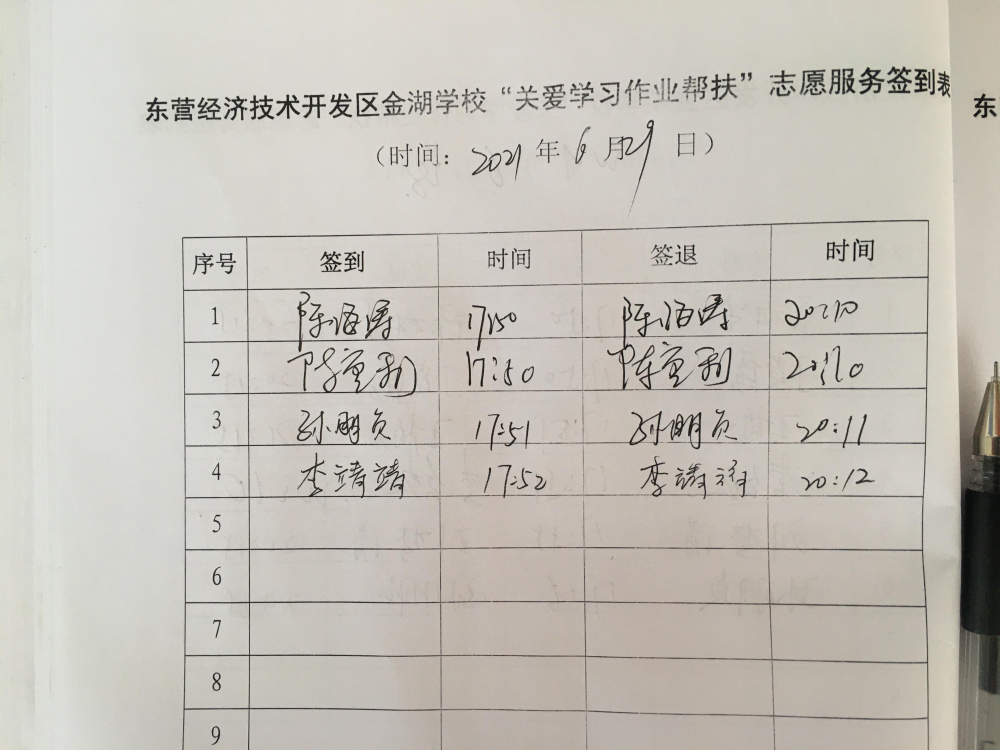 东营经济技术开发区金湖学校“关爱学习作业帮扶”志愿服务签到表
(时间: 2021 年 6 月 29 日)
序号 签到 时间 签退 时间
1 陈海涛 17:50 陈海涛 20:10
2 陈重利 17:50 陈重利 20:10
3 孙明贞 17:51 孙明贞 20:11
4 李靖靖 17:52 李靖 20:12
5
6
7
8
9
东